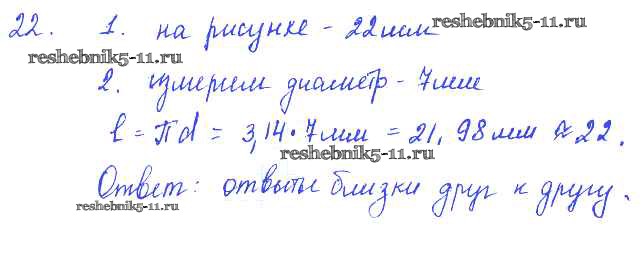 22. 1. на рисунке - 22мм
reshebnik5-11.ru
reshebnik5-11.ru
2. измерим диаметр - 7мм
l = πd = 3,14 · 7мм = 21,98мм ≈ 22.
reshebnik5-11.ru
Ответ: отвыты близки друг к другу.
reshebnik5-11.ru